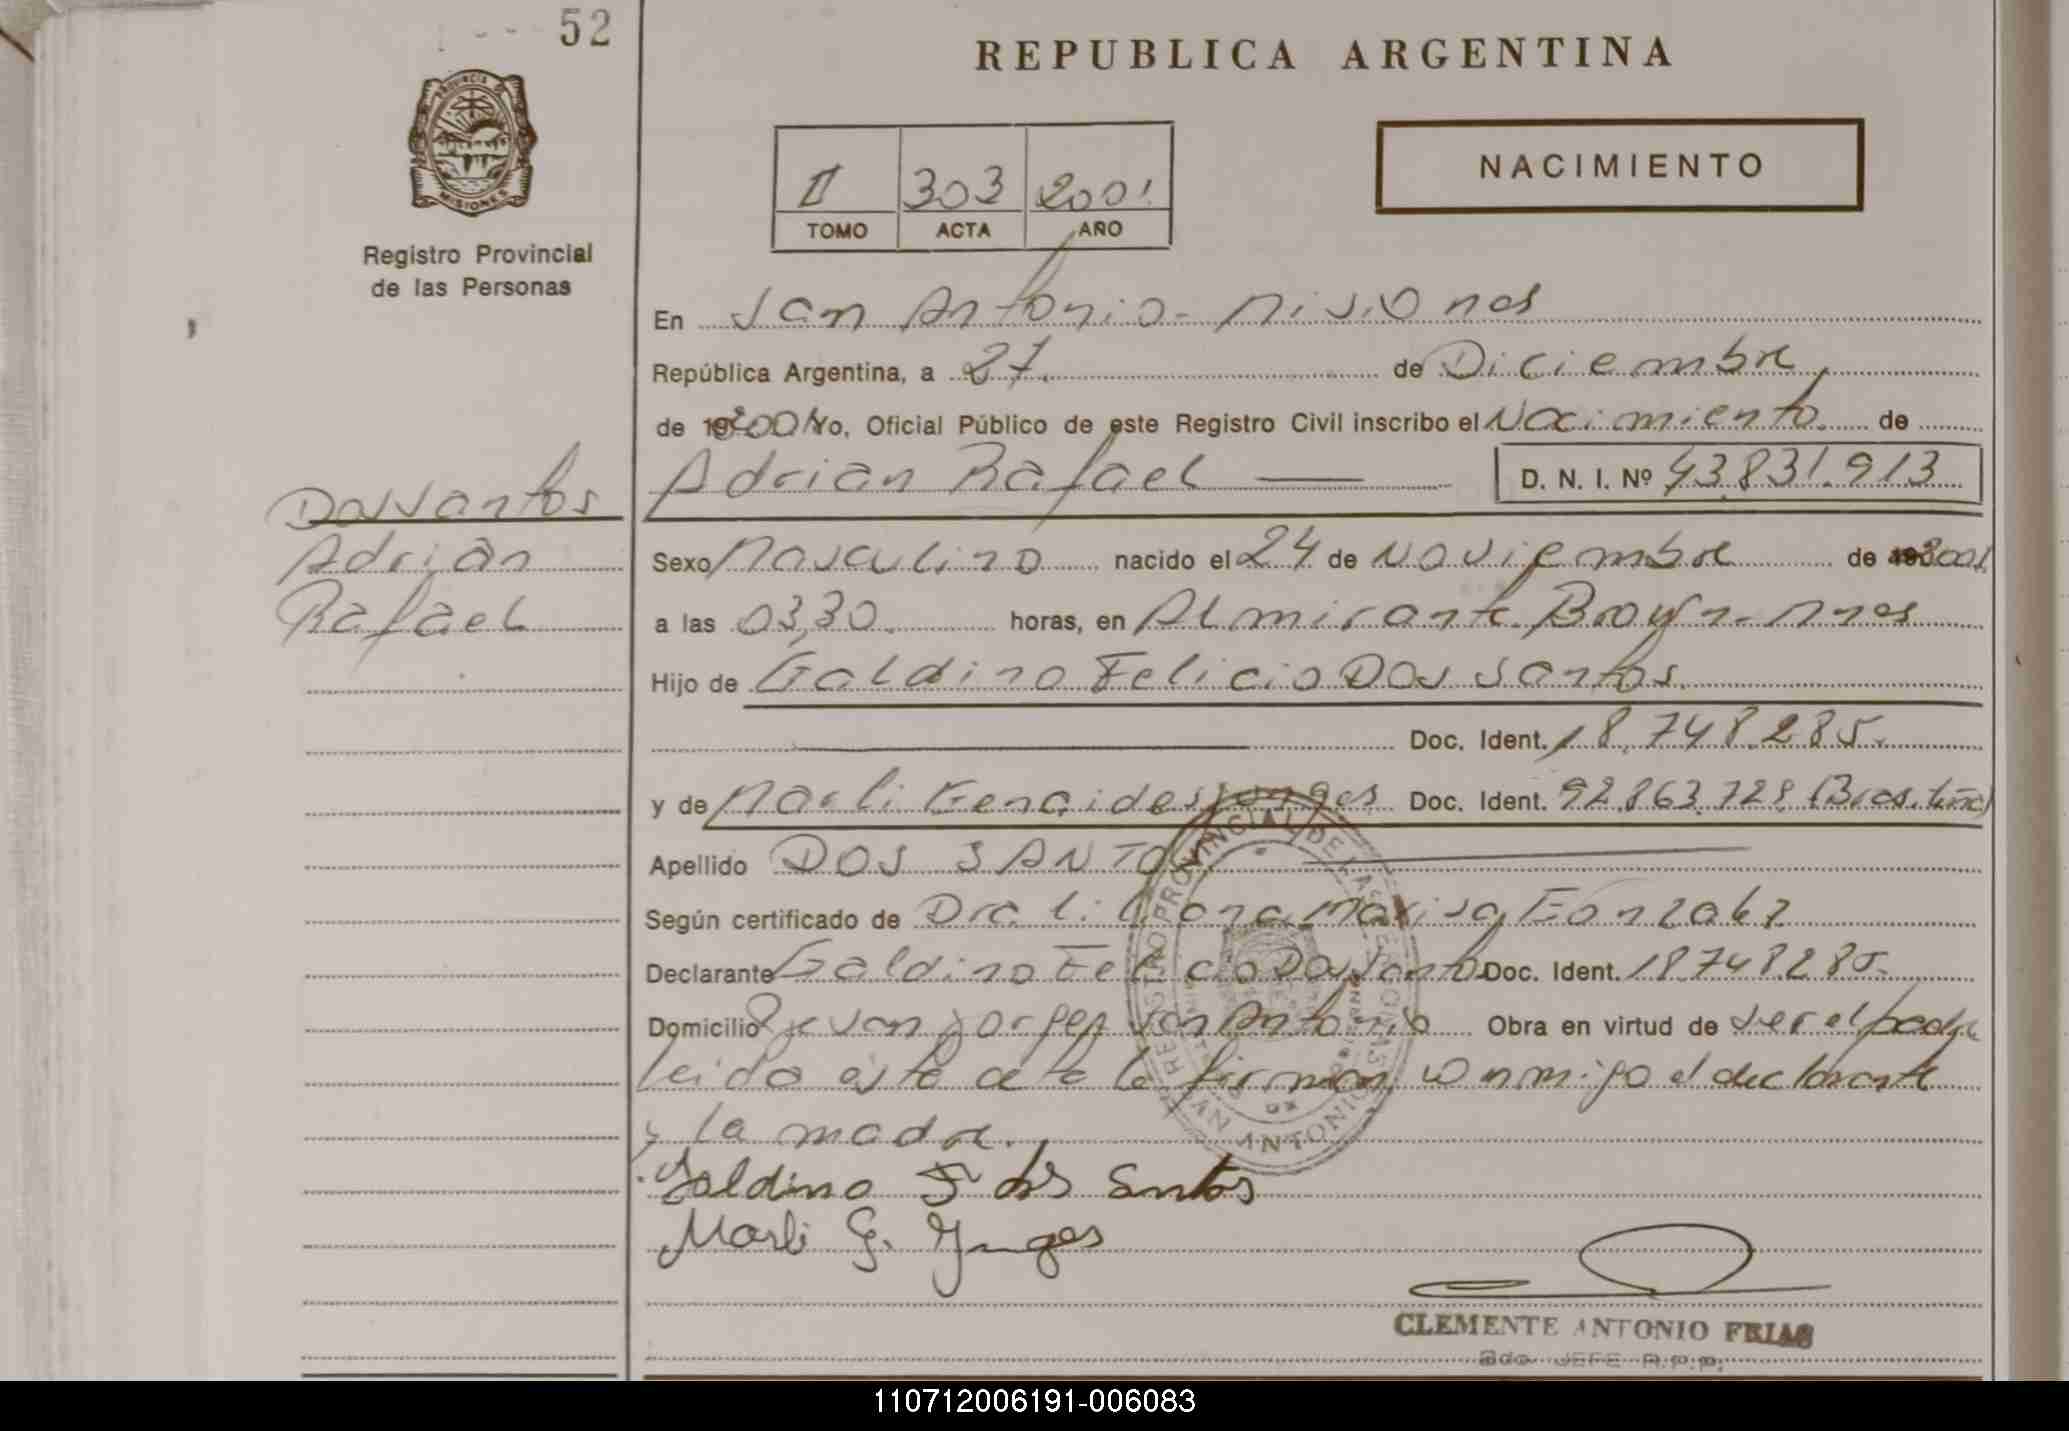 52
PROVINCIA DE
MISIONES
Registro Provincial
de las Personas
REPUBLICA ARGENTINA
NACIMIENTO
II 303 2001
TOMO ACTA AÑO
En San Antonio - Misiones
República Argentina, a 27. de Diciembre
de 192001 Yo, Oficial Público de este Registro Civil inscribo el Nacimiento de
Adrian Rafael D. N. I. Nº 43.831.913
Dos Santos
Adrian
Rafael
Sexo Masculino nacido el 24 de Noviembre de 2001
a las 03,30. horas, en Almirante Brown - Mnes
Hijo de Galdino Felicio Dos Santos
Doc. Ident. 18.748.285.
y de Marli Genaides Junges Doc. Ident. 92.863.728 (Brasileña)
Apellido DOS SANTOS
Según certificado de Dra. Liliana Marisa Gonzalez
Declarante Galdino Felicio Dos Santos Doc. Ident. 18748285.
Domicilio San Antonio Obra en virtud de ser el padre
leida esta acta la firman conmigo el declarante
y la madre.
Galdino F dos Santos
Marli G. Junges
REGISTRO PROVINCIAL DE LAS PERSONAS
SAN ANTONIO
CLEMENTE ANTONIO FRIAS
2do JEFE R.P.P.
110712006191-006083